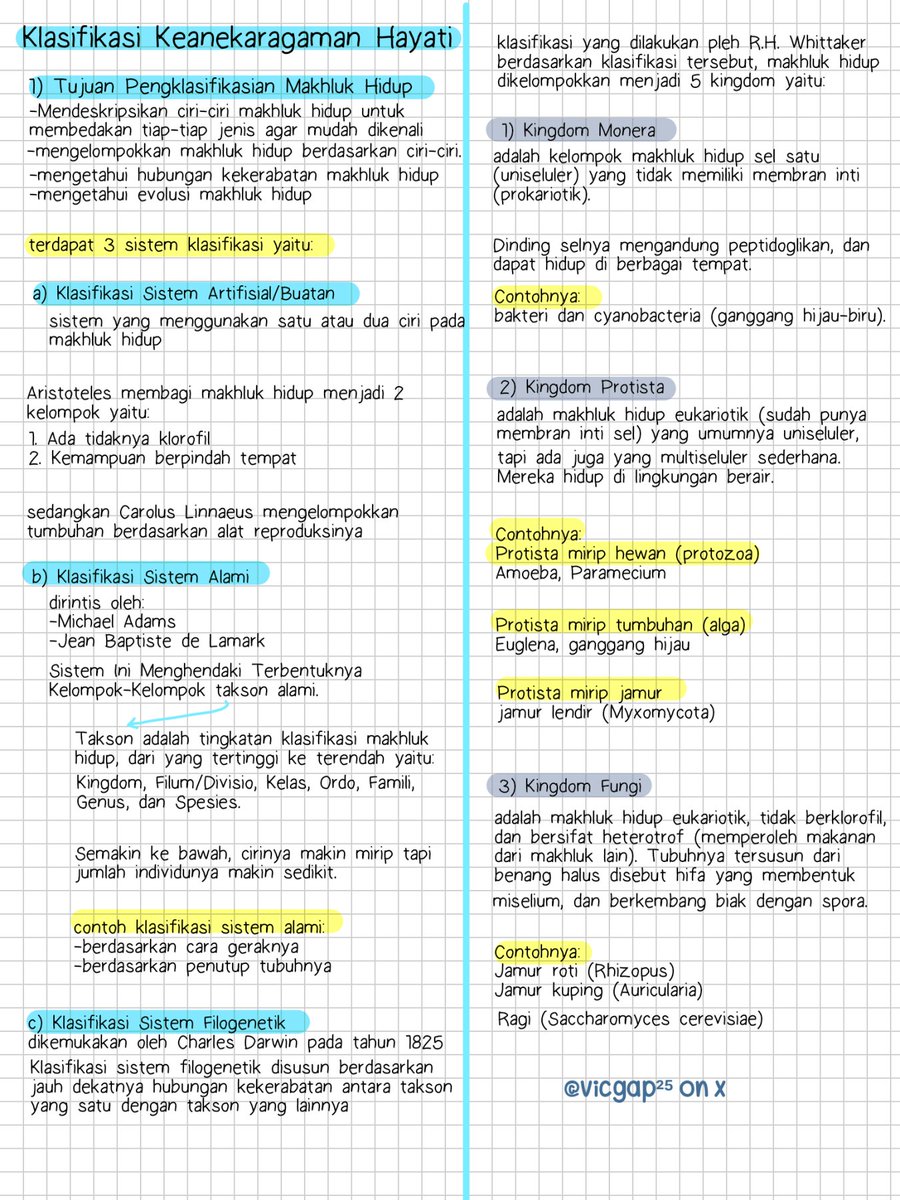 Klasifikasi Keanekaragaman Hayati
1) Tujuan Pengklasifikasian Makhluk Hidup
-Mendeskripsikan ciri-ciri makhluk hidup untuk
membedakan tiap-tiap jenis agar mudah dikenali
-mengelompokkan makhluk hidup berdasarkan ciri-ciri.
-mengetahui hubungan kekerabatan makhluk hidup
-mengetahui evolusi makhluk hidup
terdapat 3 sistem klasifikasi yaitu:
a) Klasifikasi Sistem Artifisial/Buatan
sistem yang menggunakan satu atau dua ciri pada
makhluk hidup
Aristoteles membagi makhluk hidup menjadi 2
kelompok yaitu:
1. Ada tidaknya klorofil
2. Kemampuan berpindah tempat
sedangkan Carolus Linnaeus mengelompokkan
tumbuhan berdasarkan alat reproduksinya
b) Klasifikasi Sistem Alami
dirintis oleh:
-Michael Adams
-Jean Baptiste de Lamark
Sistem Ini Menghendaki Terbentuknya
Kelompok-Kelompok takson alami.
Takson adalah tingkatan klasifikasi makhluk
hidup, dari yang tertinggi ke terendah yaitu:
Kingdom, Filum/Divisio, Kelas, Ordo, Famili,
Genus, dan Spesies.
Semakin ke bawah, cirinya makin mirip tapi
jumlah individunya makin sedikit.
contoh klasifikasi sistem alami:
-berdasarkan cara geraknya
-berdasarkan penutup tubuhnya
c) Klasifikasi Sistem Filogenetik
dikemukakan oleh Charles Darwin pada tahun 1825
Klasifikasi sistem filogenetik disusun berdasarkan
jauh dekatnya hubungan kekerabatan antara takson
yang satu dengan takson yang lainnya
klasifikasi yang dilakukan pleh R.H. Whittaker
berdasarkan klasifikasi tersebut, makhluk hidup
dikelompokkan menjadi 5 kingdom yaitu:
1) Kingdom Monera
adalah kelompok makhluk hidup sel satu
(uniseluler) yang tidak memiliki membran inti
(prokariotik).
Dinding selnya mengandung peptidoglikan, dan
dapat hidup di berbagai tempat.
Contohnya:
bakteri dan cyanobacteria (ganggang hijau-biru).
2) Kingdom Protista
adalah makhluk hidup eukariotik (sudah punya
membran inti sel) yang umumnya uniseluler,
tapi ada juga yang multiseluler sederhana.
Mereka hidup di lingkungan berair.
Contohnya:
Protista mirip hewan (protozoa)
Amoeba, Paramecium
Protista mirip tumbuhan (alga)
Euglena, ganggang hijau
Protista mirip jamur
jamur lendir (Myxomycota)
3) Kingdom Fungi
adalah makhluk hidup eukariotik, tidak berklorofil,
dan bersifat heterotrof (memperoleh makanan
dari makhluk lain). Tubuhnya tersusun dari
benang halus disebut hifa yang membentuk
miselium, dan berkembang biak dengan spora.
Contohnya:
Jamur roti (Rhizopus)
Jamur kuping (Auricularia)
Ragi (Saccharomyces cerevisiae)
@vicgap²⁵ on x